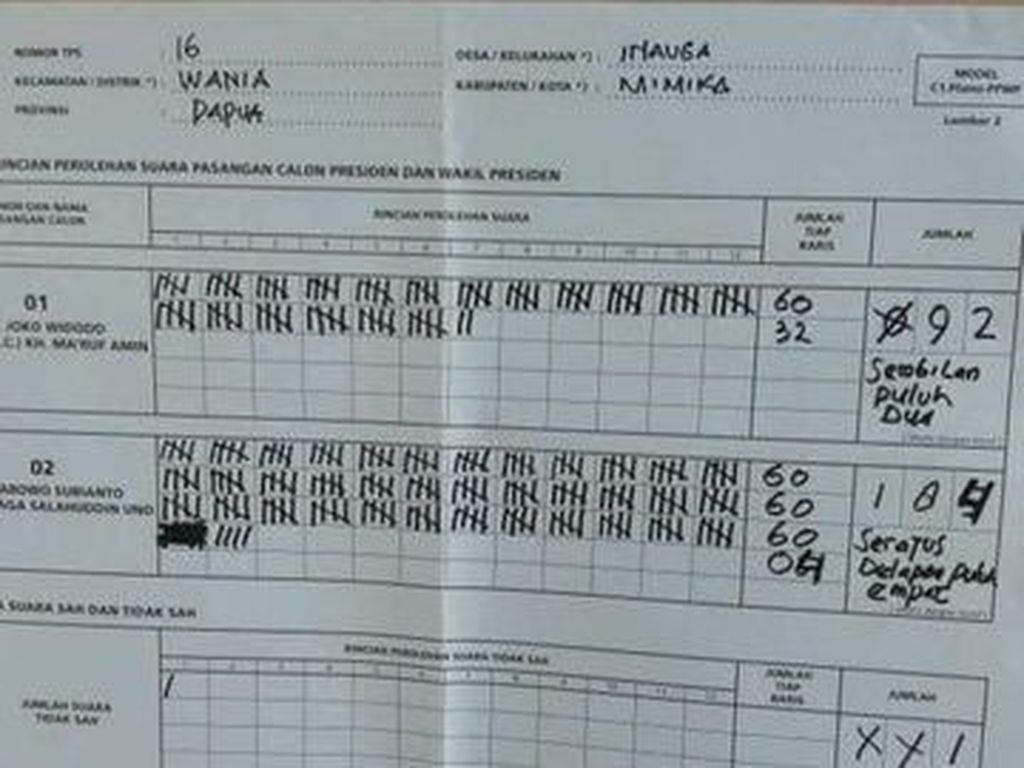 NOMOR TPS : 16
DESA / KELURAHAN *) : INAUGA
KECAMATAN / DISTRIK *) : WANIA
KABUPATEN / KOTA *) : MIMIKA
PROVINSI : PAPUA
MODEL
C1.Plano-PPWP
Lembar 2
RINCIAN PEROLEHAN SUARA PASANGAN CALON PRESIDEN DAN WAKIL PRESIDEN
RINCIAN PEROLEHAN SUARA
JUMLAH
TIAP
BARIS
JUMLAH
01
JOKO WIDODO
KH. MA'RUF AMIN
60
32
X 9 2
Sembilan
puluh
Dua
02
PRABOWO SUBIANTO
SALAHUDDIN UNO
60
60
60
04
1 8 4
Seratus
Delapan puluh
empat
SUARA SAH DAN TIDAK SAH
RINCIAN PEROLEHAN SUARA TIDAK SAH
JUMLAH
TIAP
BARIS
JUMLAH
JUMLAH SUARA
TIDAK SAH
X X 1